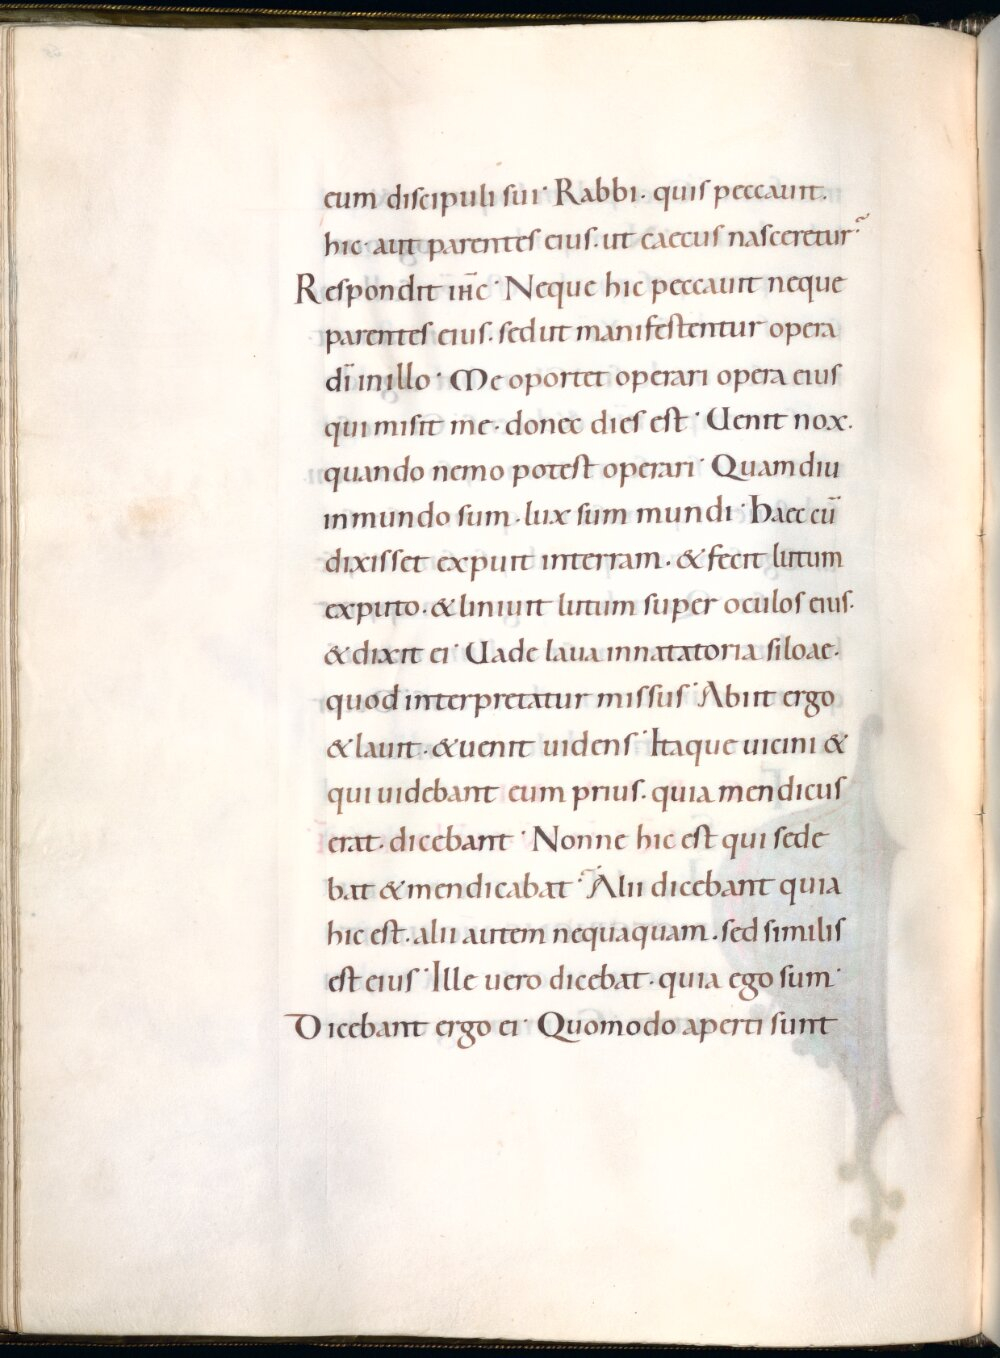 eum discipuli sui· Rabbi· quis peccauit·
hic· aut parentes eius· ut caecus nasceretur?
Respondit ihc̄· Neque hic peccauit neque
parentes eius· sed ut manifestentur opera
dī inillo· Me oportet operari opera eius
qui misit me· donec dies est· Uenit nox·
quando nemo potest operari· Quamdiu
inmundo sum· lux sum mundi· Haec cū
dixisset expuit interram· & fecit lutum
exputo· & liniuit lutum super oculos eius·
& dixit ei· Uade laua innatatoria siloae·
quod interpretatur missus· Abiit ergo
& lauit· & uenit uidens· Itaque uicini &
qui uidebant eum prius· quia mendicus
erat· dicebant· Nonne hic est qui sede
bat & mendicabat? Alii dicebant quia
hic est· alii autem nequaquam· sed similis
est eius· Ille uero dicebat· quia ego sum·
Dicebant ergo ei· Quomodo aperti sunt